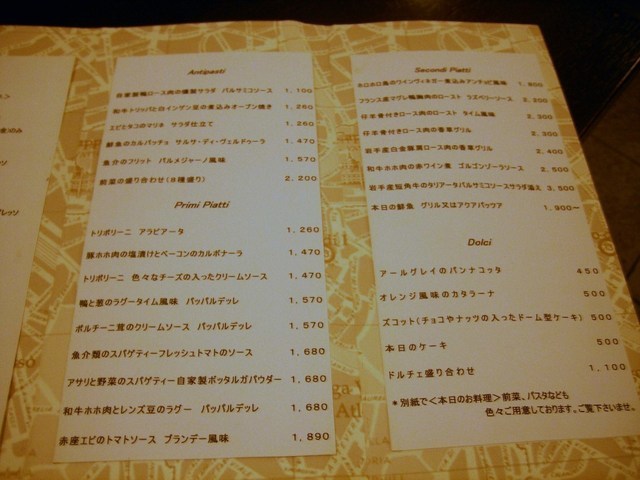 Antipasti
自家製鴨ロース肉の燻製サラダ バルサミコソース 1,100
和牛トリッパと白インゲン豆の煮込みオーブン焼き 1,260
エビとタコのマリネ サラダ仕立て 1,260
鮮魚のカルパッチョ サルサ・ディ・ヴェルドゥーラ 1,470
魚介のフリット パルメジャーノ風味 1,570
前菜の盛り合わせ(8種盛り) 2,200
Primi Piatti
トリポリーニ アラビアータ 1,260
豚ホホ肉の塩漬けとベーコンのカルボナーラ 1,470
トリポリーニ 色々なチーズの入ったクリームソース 1,470
鴨と葱のラグータイム風味 パッパルデッレ 1,570
ポルチーニ茸のクリームソース パッパルデッレ 1,570
魚介類のスパゲティーフレッシュトマトのソース 1,680
アサリと野菜のスパゲティー自家製ボッタルガパウダー 1,680
和牛ホホ肉とレンズ豆のラグー パッパルデッレ 1,680
赤座エビのトマトソース ブランデー風味 1,890
Secondi Piatti
ホロホロ鳥のワインヴィネガー煮込みアンチョビ風味 1,800
フランス産マグレ鴨胸肉のロースト ラズベリーソース 2,200
仔羊骨付きロース肉のロースト タイム風味 2,300
仔羊骨付きロース肉の香草グリル 2,300
岩手産白金豚肩ロース肉の香草グリル 2,400
和牛ホホ肉の赤ワイン煮 ゴルゴンゾーラソース 2,500
岩手産短角牛のタリアータバルサミコソースサラダ添え 3,500
本日の鮮魚 グリル又はアクアパッツァ 1,900〜
Dolci
アールグレイのパンナコッタ 450
オレンジ風味のカタラーナ 500
ズコット(チョコやナッツの入ったドーム型ケーキ) 500
本日のケーキ 500
ドルチェ盛り合わせ 1,100
*別紙で<本日のお料理>前菜、パスタなども
色々ご用意しております。ご覧下さいませ。